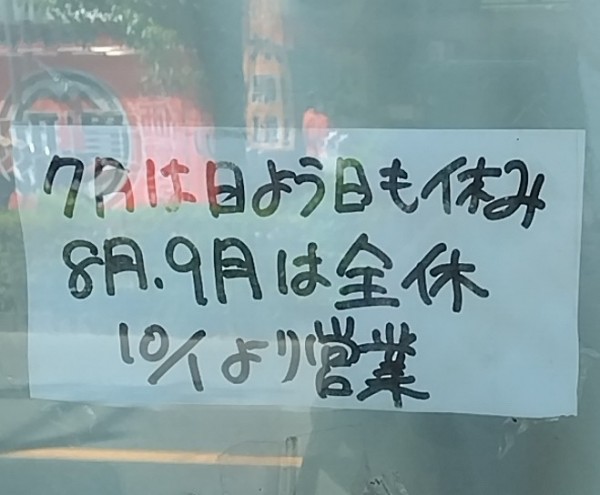 7月は日よう日も休み
8月.9月は全休
10/1より営業